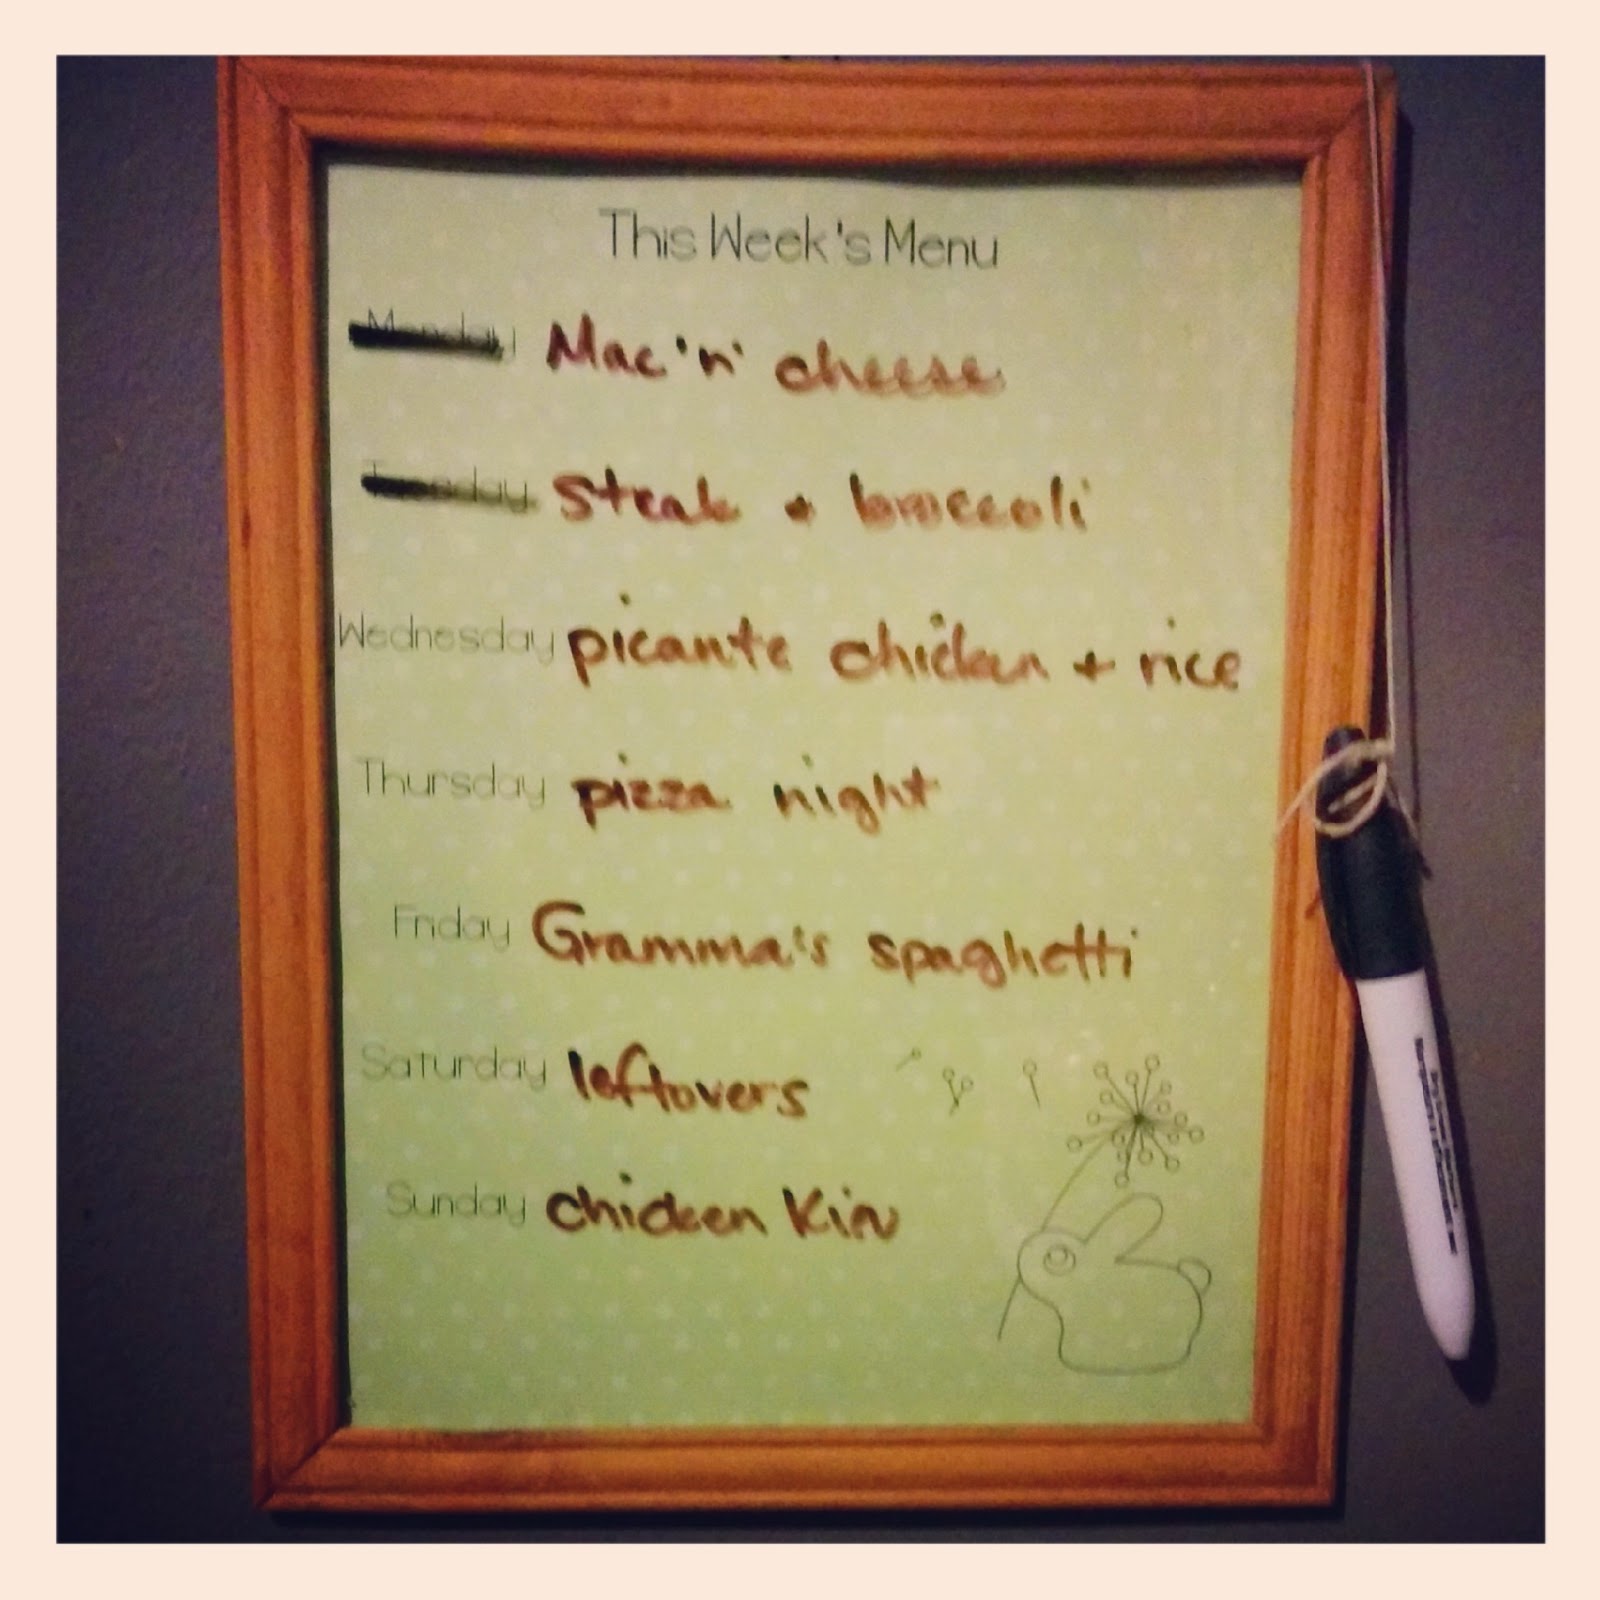 This Week's Menu
Monday Mac 'n' cheese
Tuesday Steak + broccoli
Wednesday picante chicken + rice
Thursday pizza night
Friday Gramma's spaghetti
Saturday leftovers
Sunday chicken Kiev